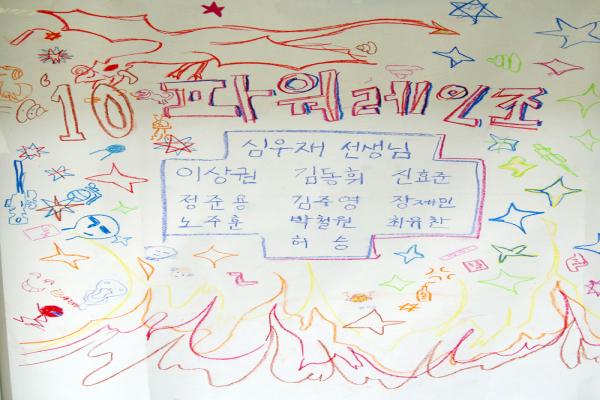 10 파워레인조
심우재 선생님
이상권 김동휘 신효준
정준용 김주영 장제민
노주훈 박철원 최유찬
허승